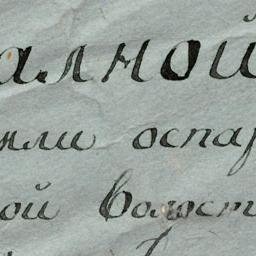 алной
или оспар
ой Волост